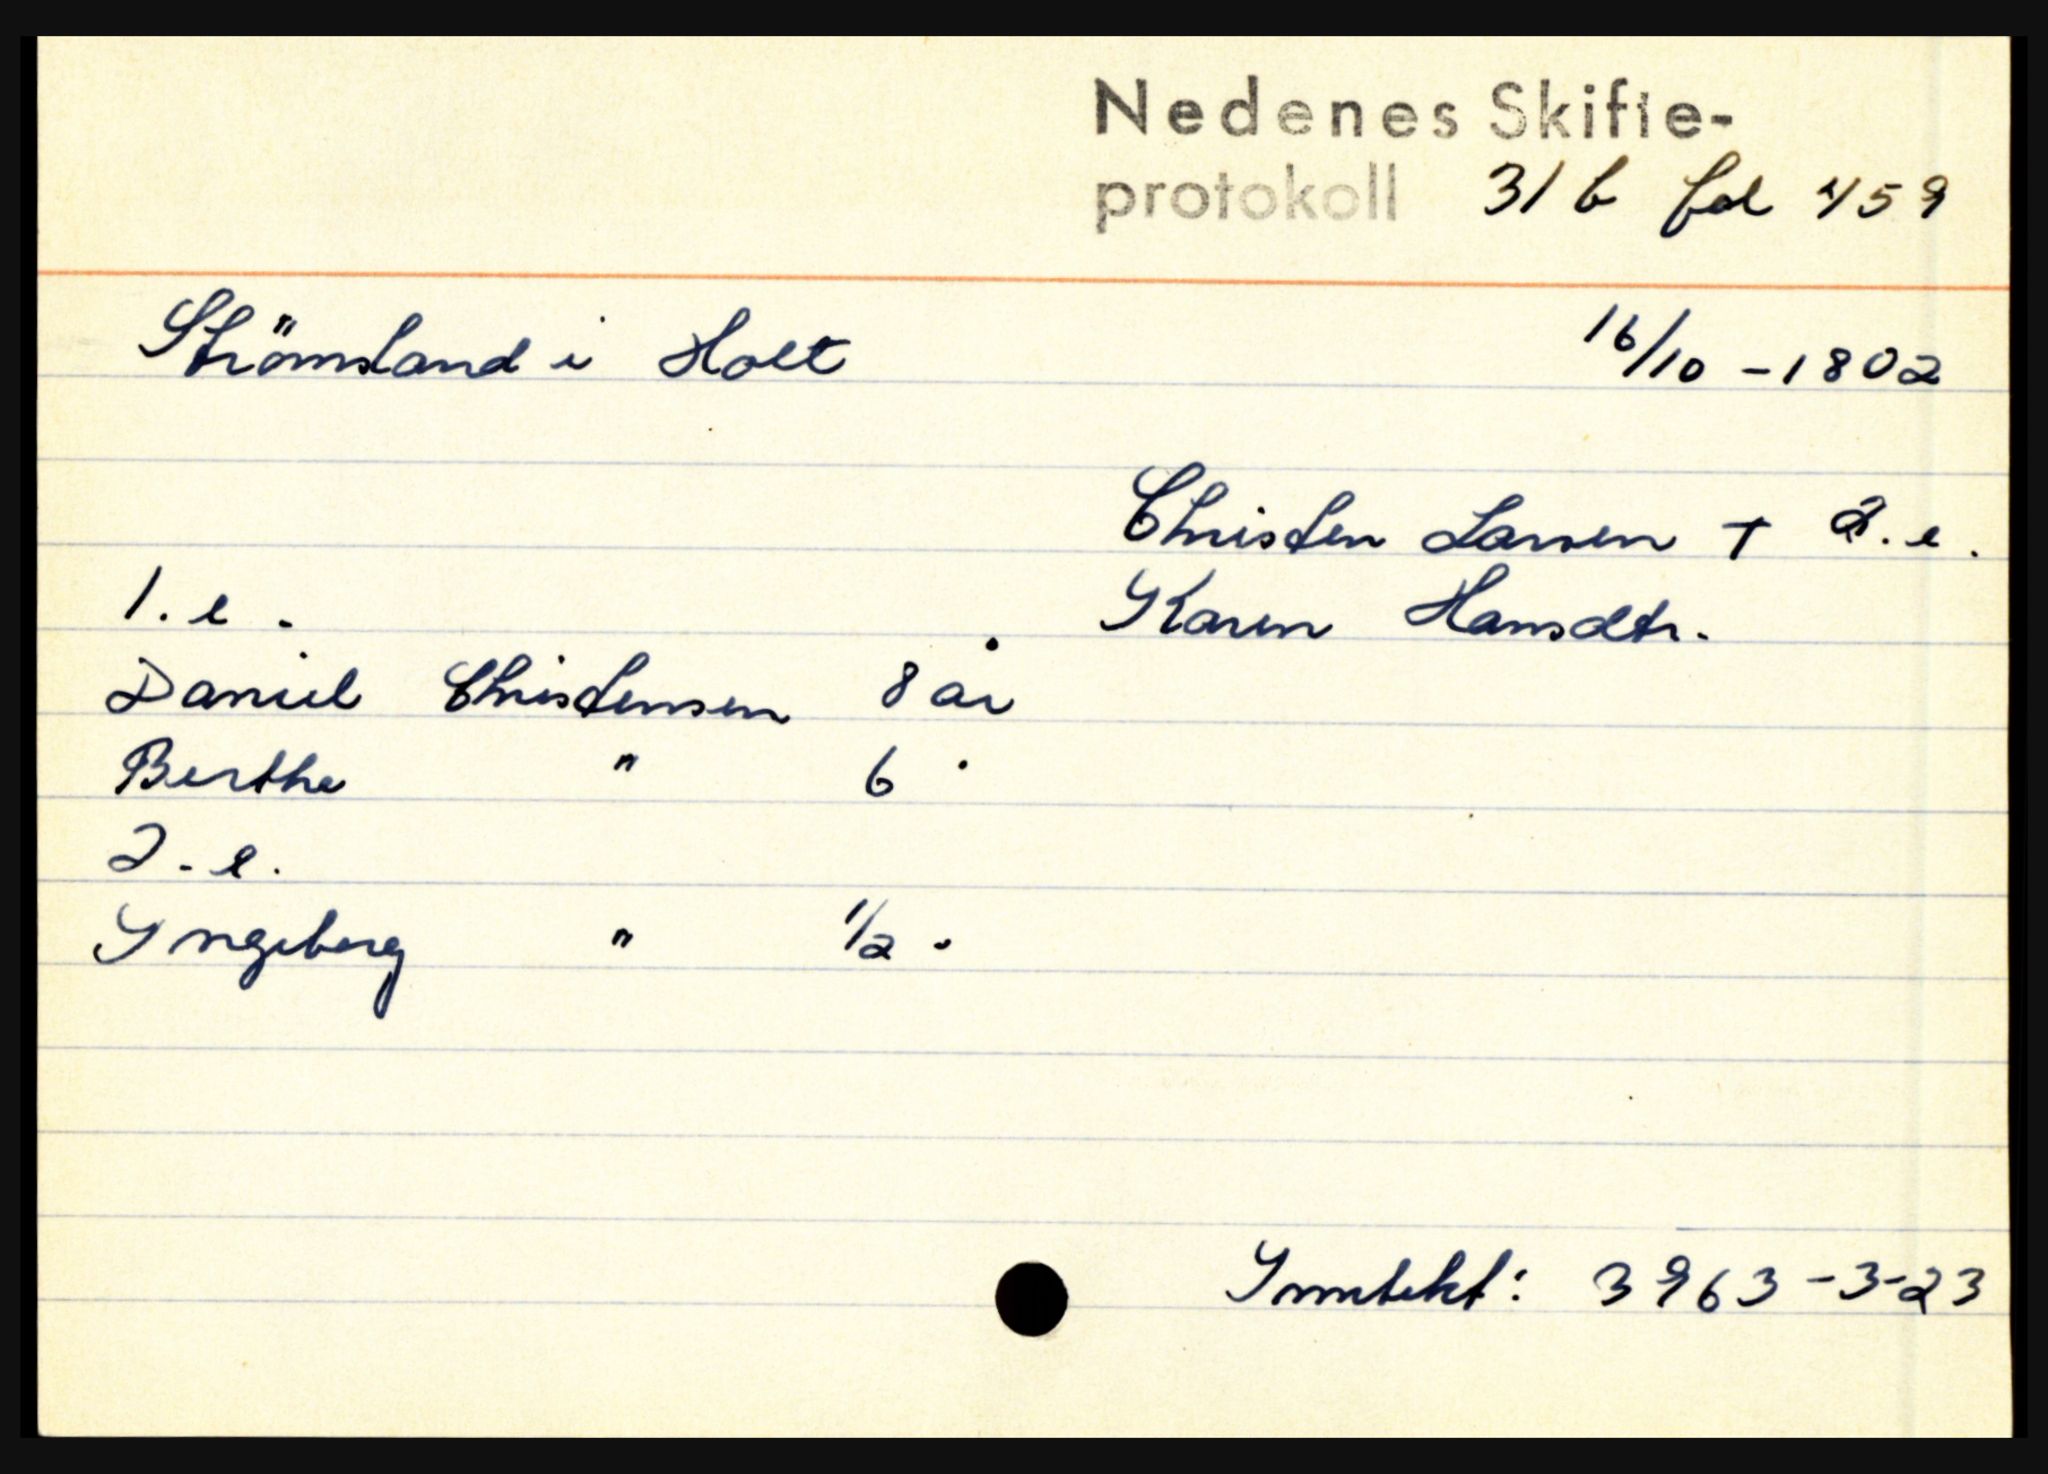 Nedenes Skifte-
protokoll 31 b fol 459
Strömsland i Holt 16/10 - 1802
Christen Larsen + 2. e.
1. e. Karen Hansdtr.
Daniel Christensen 8 år
Berthe " 6 .
2. e.
Yngeborg " 1/2 .
Ynntekt: 3963-3-23